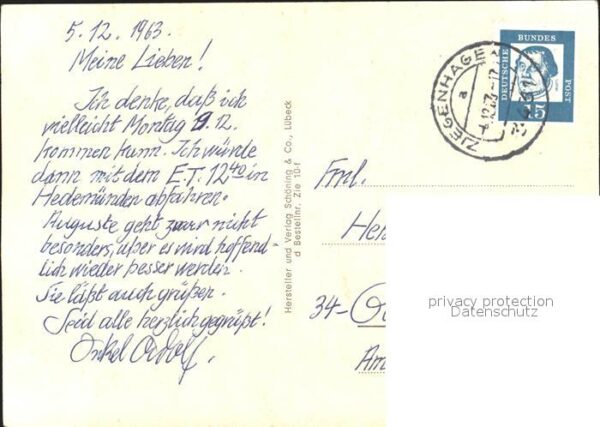 5.12.1963.
Meine Lieben!
Ich denke, daß ich
vielleicht Montag 9.12.
kommen kann. Ich würde
dann mit dem E.T. 12 40 in
Hedemünden abfahren.
Auguste geht zwar nicht
besonders, aber es wird hoffend-
lich wieder besser werden.
Sie läßt auch grüßen.
Seid alle herzlich gegrüßt!
Onkel Adolf.
Hersteller und Verlag Schöning & Co., Lübeck
d Bestellnr. Zie 10-f
ZIEGENHAGE
a
DEUTSCHE
BUNDES
POST
15
Fml.
He
34-
Am
privacy protection
Datenschutz